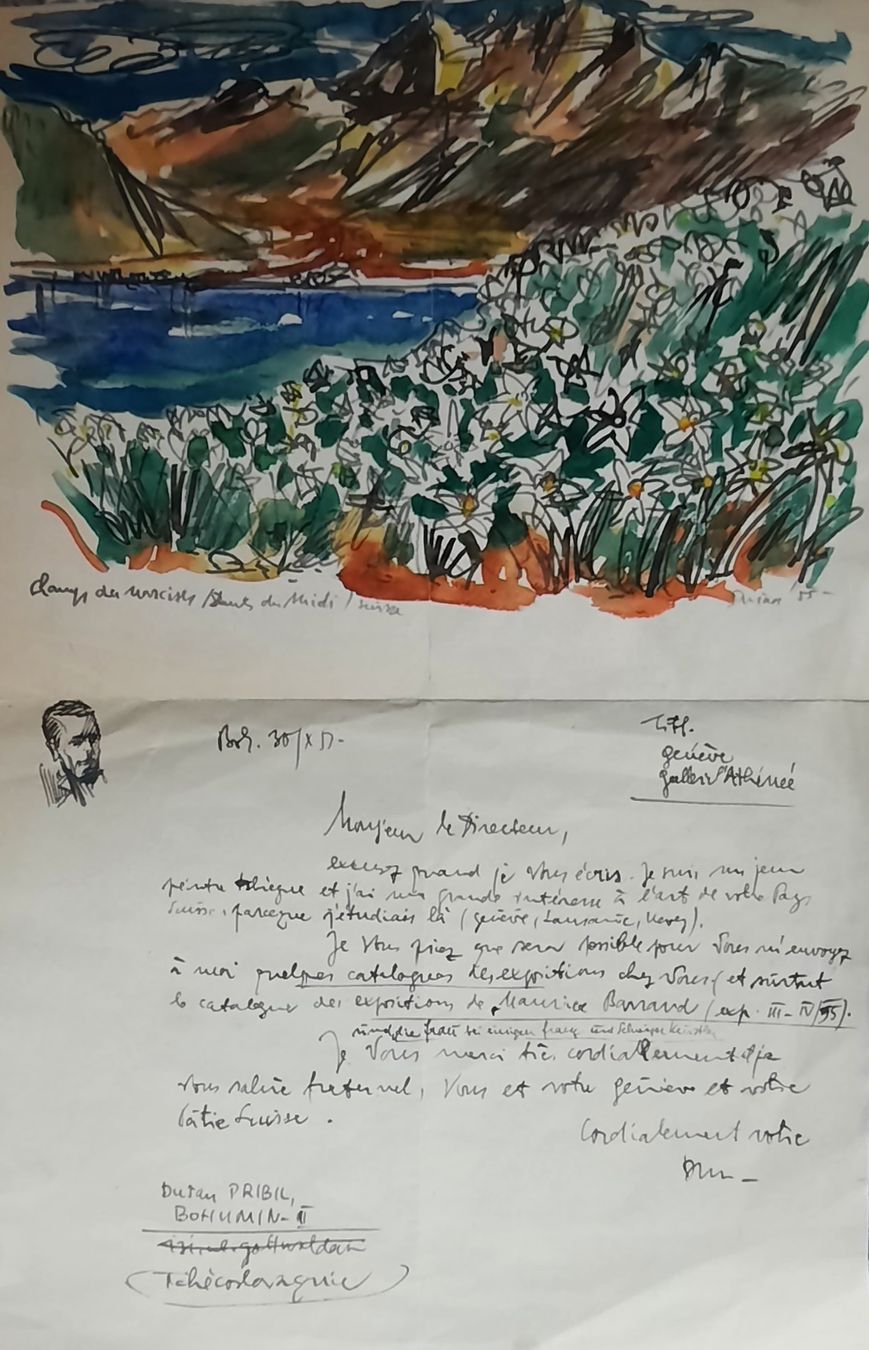 Champs des Narcisses / Dents du Midi / Suisse
Dušan '55 -
Boh. 30/X 55-
Titl.
genève
gallerie l'Athénée
Monsieur le Directeur,
excusez quand je Vous écris. Je suis un jeun
peintre tchèque et j'ai une grande intéresse à l'art de votre Pays
Suisse, parceque j'étudiais là (genève, Lausanne, Vevey).
Je Vous priez que sera possible pour Vous m'envoyez
à moi quelques catalogues des expositions chez Vous (et surtout
le catalogue des expositions de Maurice Barraud (exp. III-IV/55).
Je Vous merci très cordiallement et je
Vous salue fraternel, Vous et votre genève et votre
Pâtie Suisse.
Cordialement votre
Dušan PRIBIL,
BOHUMIN-II
Tchécoslovaquie